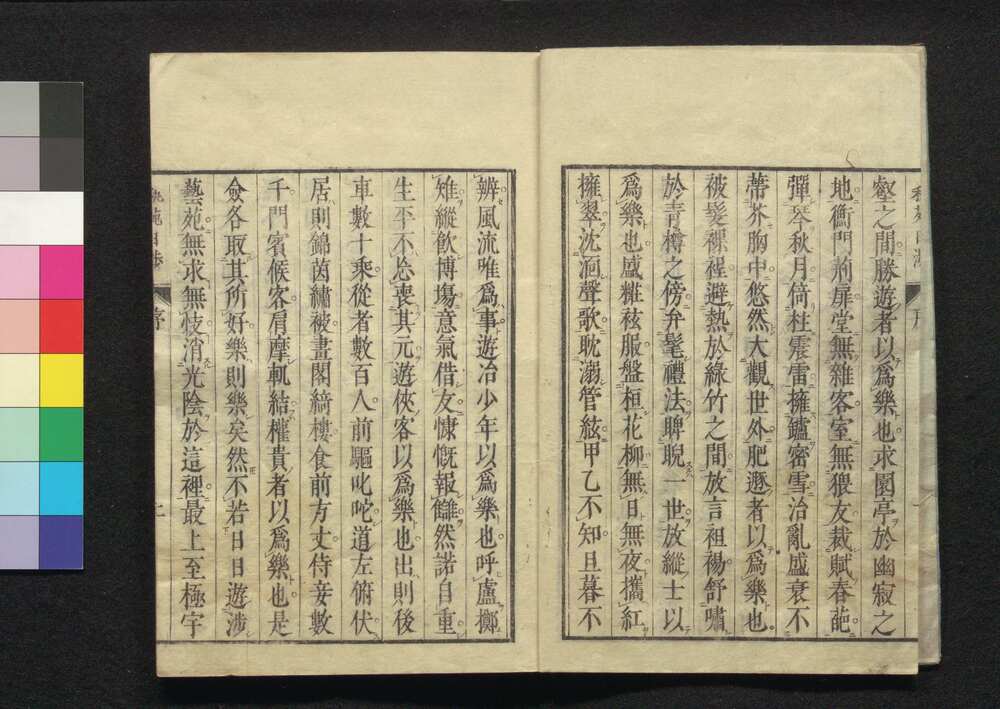 壑之間勝遊者以爲樂也求園亭於幽寂之
地衡門荊扉堂無雜客室無猥友裁賦春葩
彈琴秋月倚柱震雷擁鑪密雪治亂盛衰不
蔕芥胸中悠然大觀世外肥遯者以爲樂也
被髮裸裎避熱於綠竹之間放言袒裼舒嘯
於青樽之傍弁髦禮法睥睨一世放縱士以
爲樂也盛糚袨服盤桓花柳無日無夜攜紅
擁翠沈湎聲歌耽溺管絃甲乙不知旦暮不
辨風流唯爲事遊冶少年以爲樂也呼盧擲
雉縱飲博塲意氣借友慷慨報讎然諾自重
生平不忘喪其元遊俠客以爲樂也出則後
車數十乘從者數百人前驅叱咤道左俯伏
居則錦茵繡被畫閣綺樓食前方丈侍妾數
千門賓候客肩摩軌結權貴者以爲樂也是
僉各取其所好樂則樂矣然不若日日遊涉
藝苑無求無忮消光陰於這裡最上至極宇
序